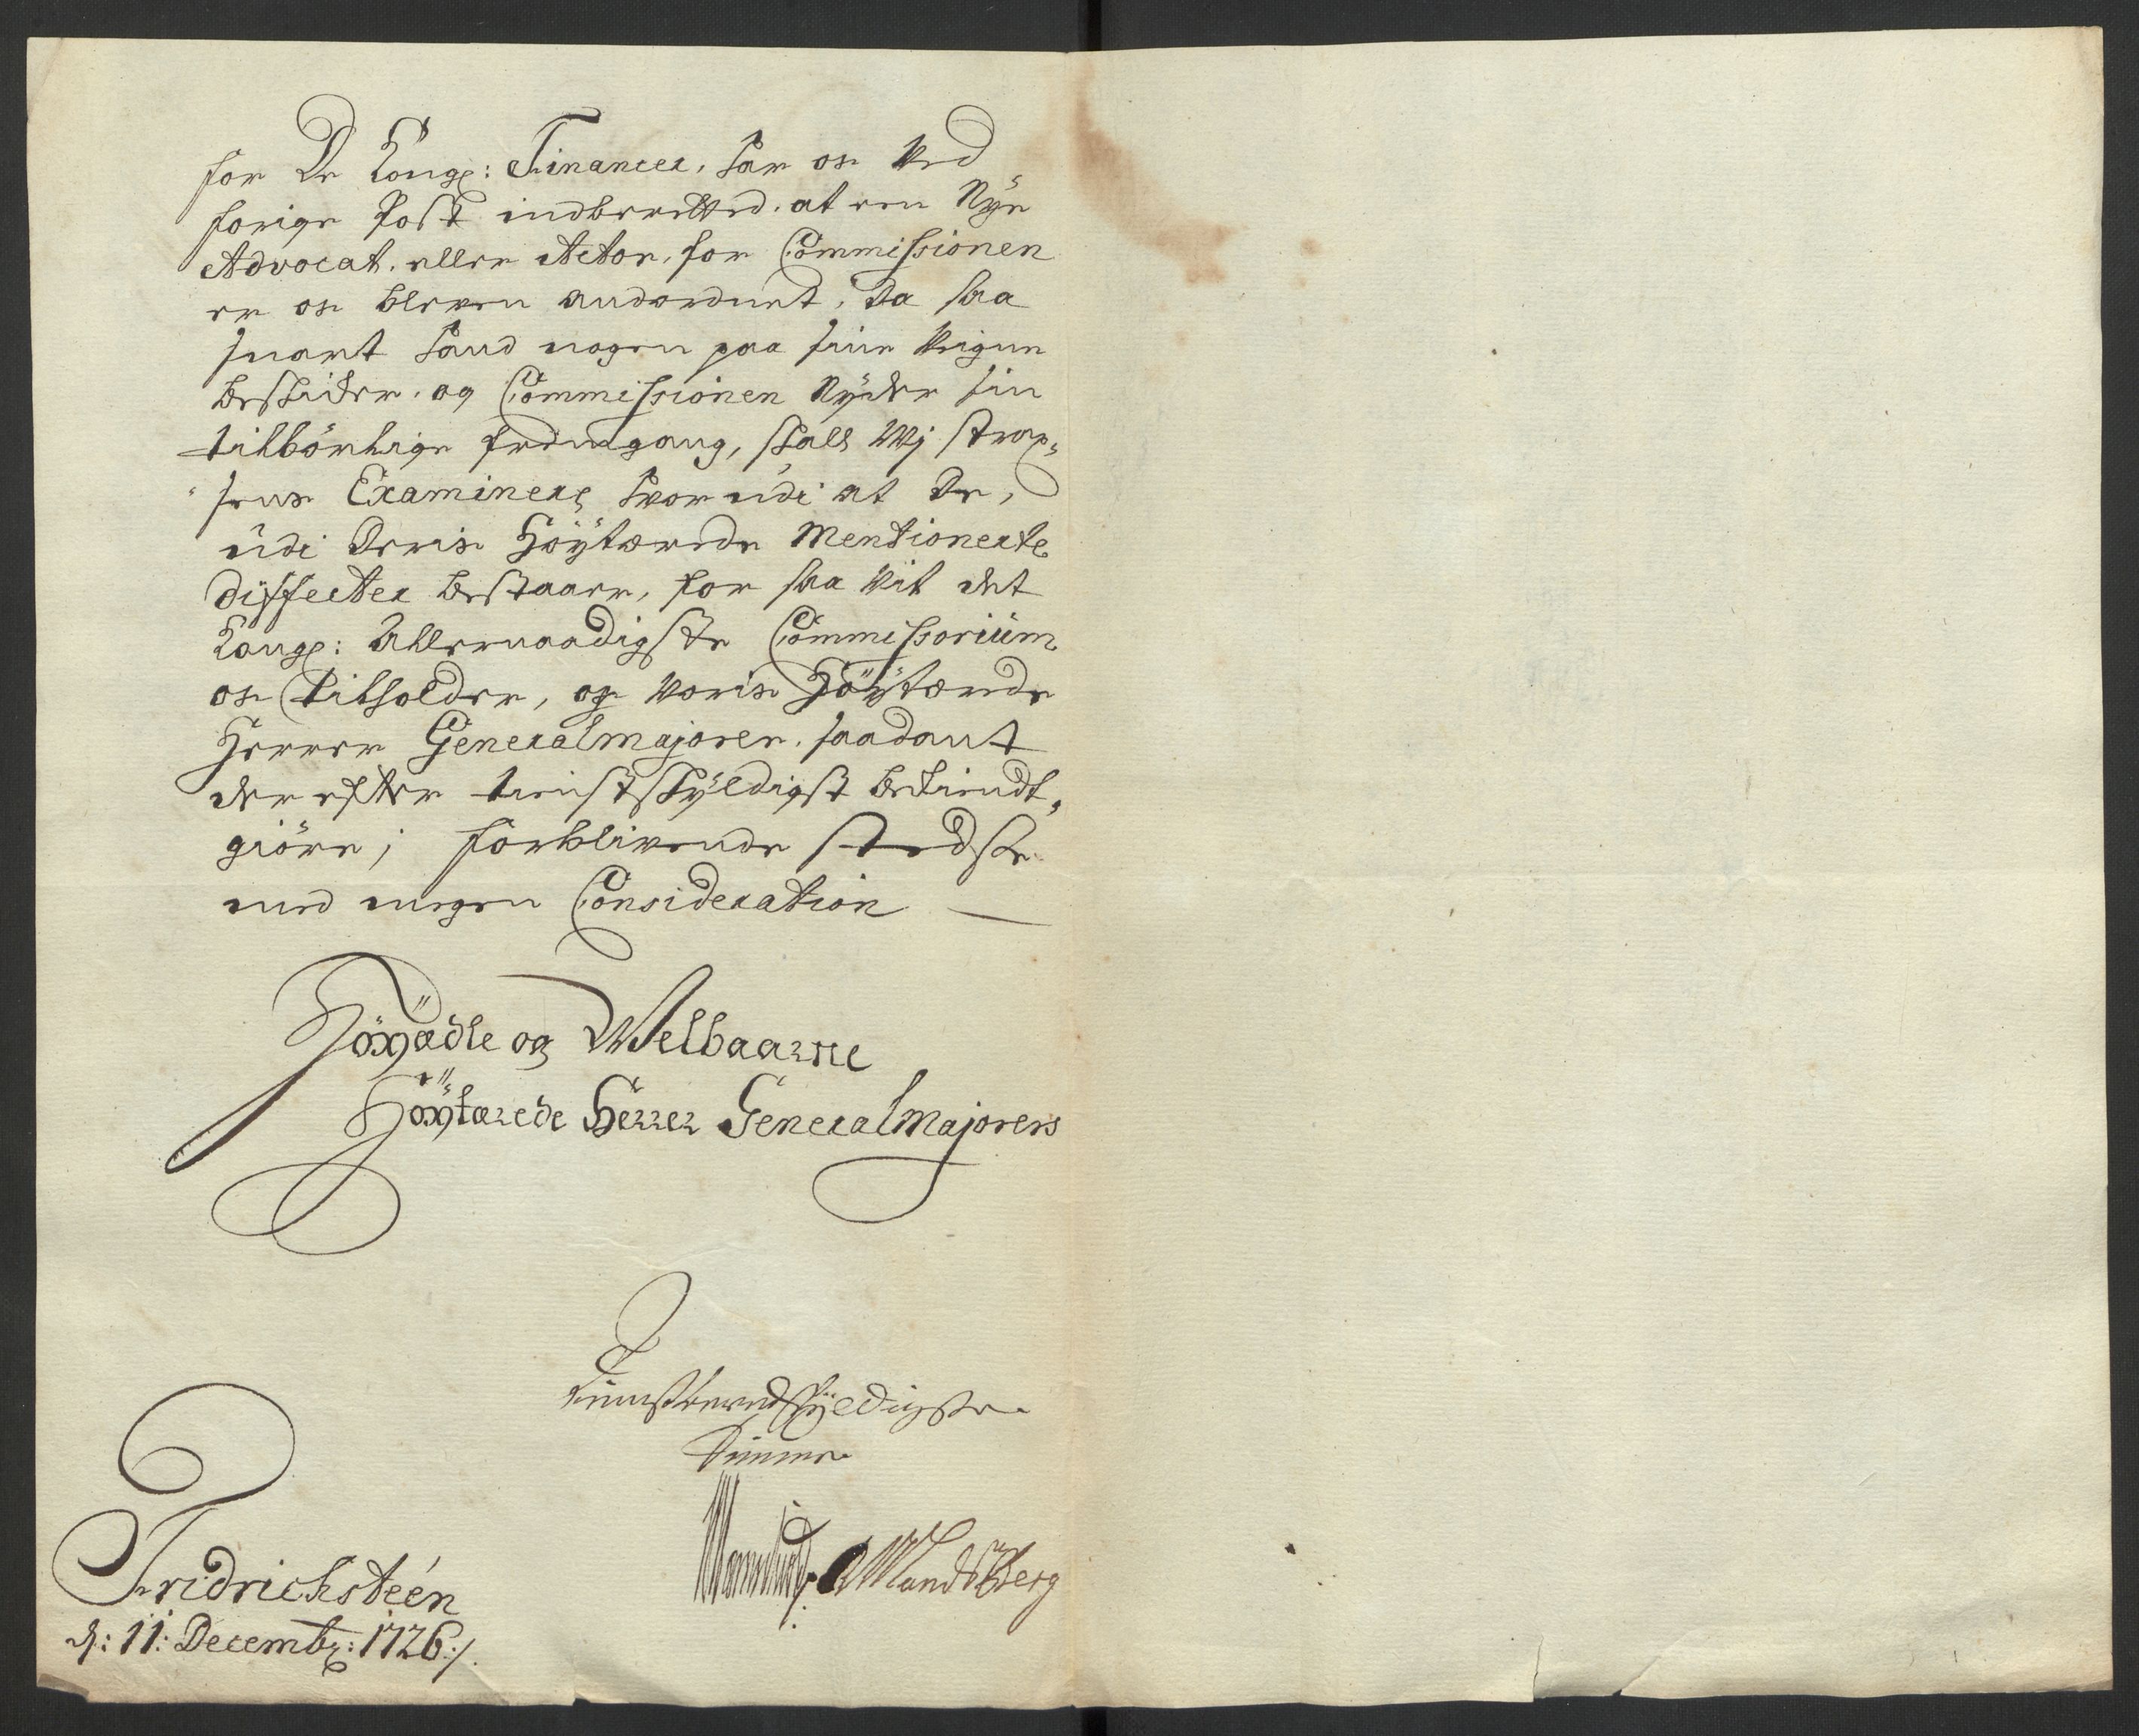 for De Kongl: Financer, har os Ved
forige Post indberetted, at een Nÿe
Advocat, eller Actor, for Commissionen
er os bleven andordnet, Da saa
snart hand nogen paa sine Veigne
beskicker, og Commissionen Nÿder sin
tilbörlige fremgang, skall Wj strax
Examinere, hvor udi at De,
udi Deris Höÿtærede Mentionerte
differter bestaaer, for saa Vit det
Kongl: Allernaadigste Commissorium
os tilholder, og Voris Höÿtærede
Herrer Generalmajorer, saadant
der efter tienstskÿldigst bekiendt,
giöre; forblivende stedse
med megen Consideration
Höyædle og Welbaarne
Höÿtærede Herrer Generalmajorers
tienstberedskÿldigste
Tienere
WandsBerg
Fridrichsteen
d: 11: Decembr: 1726 :/.